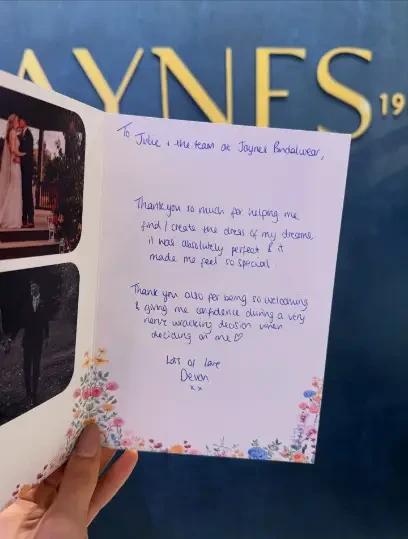 AYNES
19
To Julie + the team at Jaynes Bridalwear,
Thankyou so much for helping me
find / create the dress of my dreams
it was absolutely perfect & it
made me feel so special.
Thank you also for being so welcoming
& giving me confidence during a very
nerve wracking decision when
deciding on me ♡
Lots of love
Devon
xx